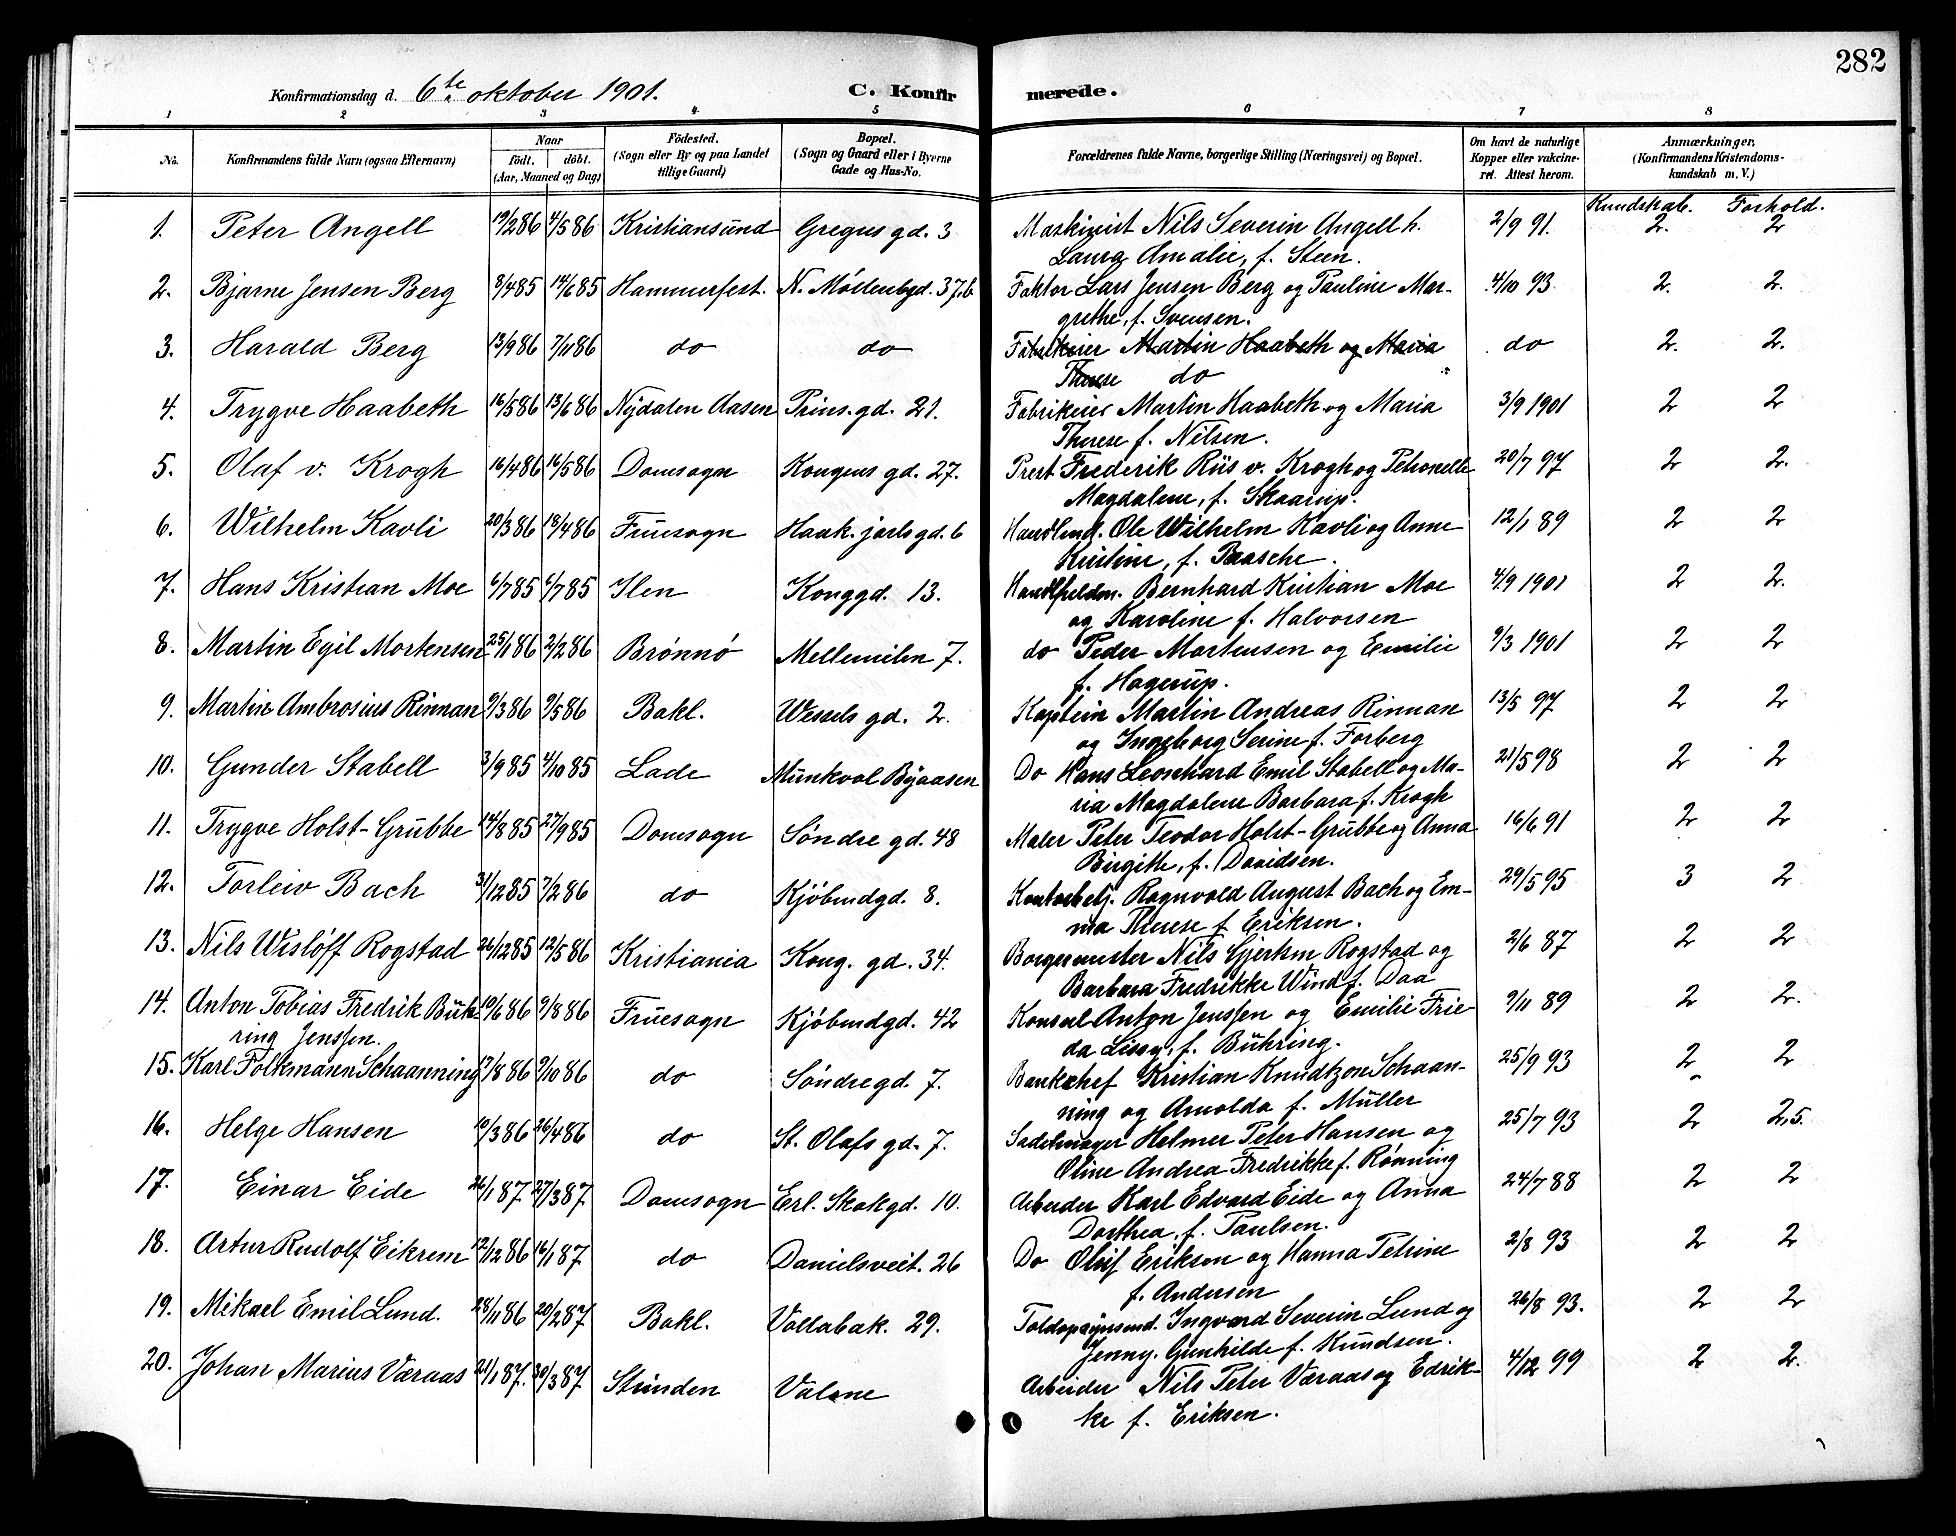 282
Konfirmationsdag d. 6te oktober 1901. C. Konfir merede.
1 2 3 4 5 6 7 8
No. Konfirmandens fulde Navn (ogsaa Efternavn) Naar født. døbt. (Aar, Maaned og Dag) Fødested. (Sogn eller By og paa Landet tillige Gaard) Bopæl. (Sogn og Gaard eller i Byerne Gade og Hus-No. Forældrenes fulde Navne, borgerlige Stilling (Næringsvei) og Bopæl. Om havt de naturlige Kopper eller vakcineret. Attest herom. Anmærkninger, (Konfirmandens Kristendomskundskab m. V.)
Kundskab. Forhold.
1. Peter Angell 19/2 86 4/5 86 Kristiansund Gregus gd. 3 Maskinist Nils Severin Angell h. 2/9 91. 2. 2
Laura Amalie, f. Steen.
2. Bjarne Jensen Berg 3/4 85 14/6 85 Hammerfest. N. Møllenbgd. 37b. Faktor Lars Jensen Berg og Pauline Mar- 4/10 93. 2. 2.
grethe, f. Svensen.
3. Harald Berg 13/9 86 7/11 86 do do Fabrikeier Martin Haabeth og Maria do 2. 2.
Therese do
4. Trygve Haabeth 16/5 86 13/6 86 Nydalen Aasen Prins. gd. 21. Fabrikeier Martin Haabeth og Maria 3/9 1901 2 2
Therese f. Nilsen.
5. Olaf v. Krogh 16/4 86 16/5 86 Domsogn Kongens gd. 27. Prest Frederik Riis v. Krogh og Petronelle 20/7 97 2 2.
Magdalene, f. Skaarup.
6. Wilhelm Kavli 20/3 86 18/4 86 Fruesogn Haak. jarls gd. 6 Handlend. Ole Wilhelm Kavli og Anne 12/1 89 2 2
Kristine, f. Paasche.
7. Hans Kristian Moe 6/7 85 6/7 85 Ilen Konggd. 13. Bernhard Kristian Moe 4/9 1901 2 2.
og Karoline f. Halvorsen
8. Martin Egil Mortensen 25/1 86 2/2 86 Brønnø Mellemilen 7. do Peder Mortensen og Emilie 9/3 1901 2 2
f. Hagerup.
9. Martin Ambrosius Rinnan 9/3 86 9/5 86 Bakl. Wessels gd. 2. Kaptein Martin Andreas Rinnan 13/5 97 2 2
og Ingeborg Serine f. Forberg
10. Gunder Stabell 3/9 85 4/10 85 Lade Munkvol Byaasen Do Hans Leonhard Emil Stabell og Ma- 21/5 98 2 2
ria Magdalene Barbara f. Krogh
11. Trygve Holst-Grubbe 14/8 85 27/9 85 Domsogn Søndre gd. 48 Maler Peter Teodor Holst-Grubbe og Anna 16/6 91 2 2
Birgitte, f. Davidsen.
12. Torleiv Bach 31/12 85 7/2 86 do Kjøbmdgd. 8. Kontorbetj. Ragnvald August Bach og Em- 29/5 95 3 2
ma Therese f. Eriksen.
13. Nils Wisløff Rogstad 26/12 85 12/5 86 Kristiania Kong. gd. 34. Borgermester Nils Gjertsen Rogstad og 2/6 87 2 2
Barbara Fredrikke Wind f. Daa
14. Anton Tobias Fredrik Büh- 10/6 86 9/8 86 Fruesogn Kjøbmdgd. 42 Konsul Anton Jenssen og Emilie Frie- 9/11 89 2 2.
ring Jenssen. da Lissy, f. Bühring.
15. Karl Folkmann Schaanning 17/8 86 9/10 86 do Søndregd. 7. Bankchef Kristian Knudtzon Schaan- 25/9 93 2 2
ning og Arnolda f. Müller
16. Helge Hansen 10/3 86 26/4 86 do St. Olafs gd. 7. Sadelmager Helmer Peter Hansen og 25/7 93 2 2,5.
Oline Andrea Fredrikke f. Rønning
17. Einar Eide 26/1 87. 27/3 87. Domsogn Erl. Skakgd. 10. Arbeider Karl Edvard Eide og Anna 24/7 88 2 2
Dorthea, f. Paulsen.
18. Artur Rudolf Eikrem 12/12 86 16/1 87 do Danielsveit. 26 Do Oluf Eriksen og Hanna Petrine 2/8 93 2 2
f. Andersen
19. Mikael Emil Lund. 28/11 86 20/2 87 Bakl. Vollabak. 29. Toldopsynsmd. Ingvard Severin Lund og 26/8 93. 2 2
Jenny. Gunhilde f. Knudsen.
20. Johan Marius Væraas 21/1 87. 30/3 87 Strinden Valene Arbeider Nils Peter Væraas og Edrik- 4/12 99 2 2.
ke f. Eriksen.